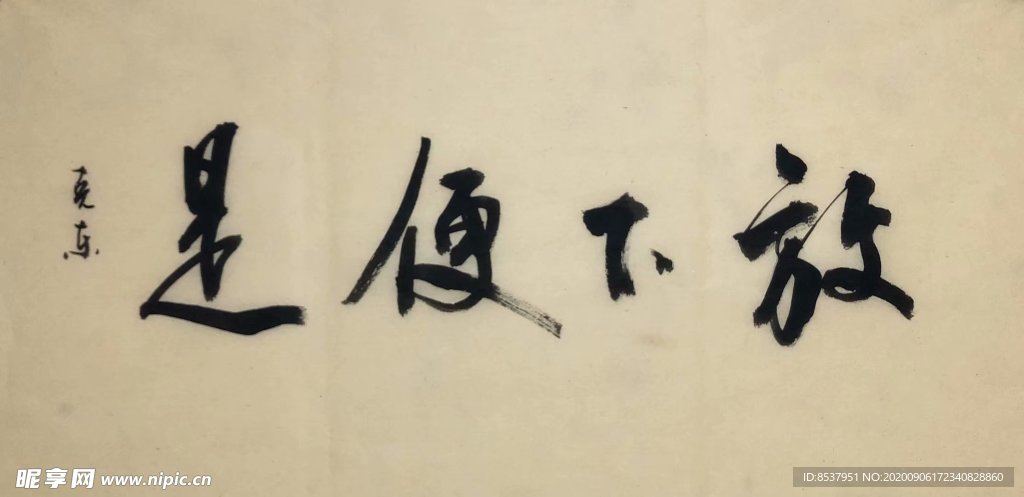 放下便是
克东
昵享网 www.nipic.cn
ID:8537951 NO:20200906172340828860